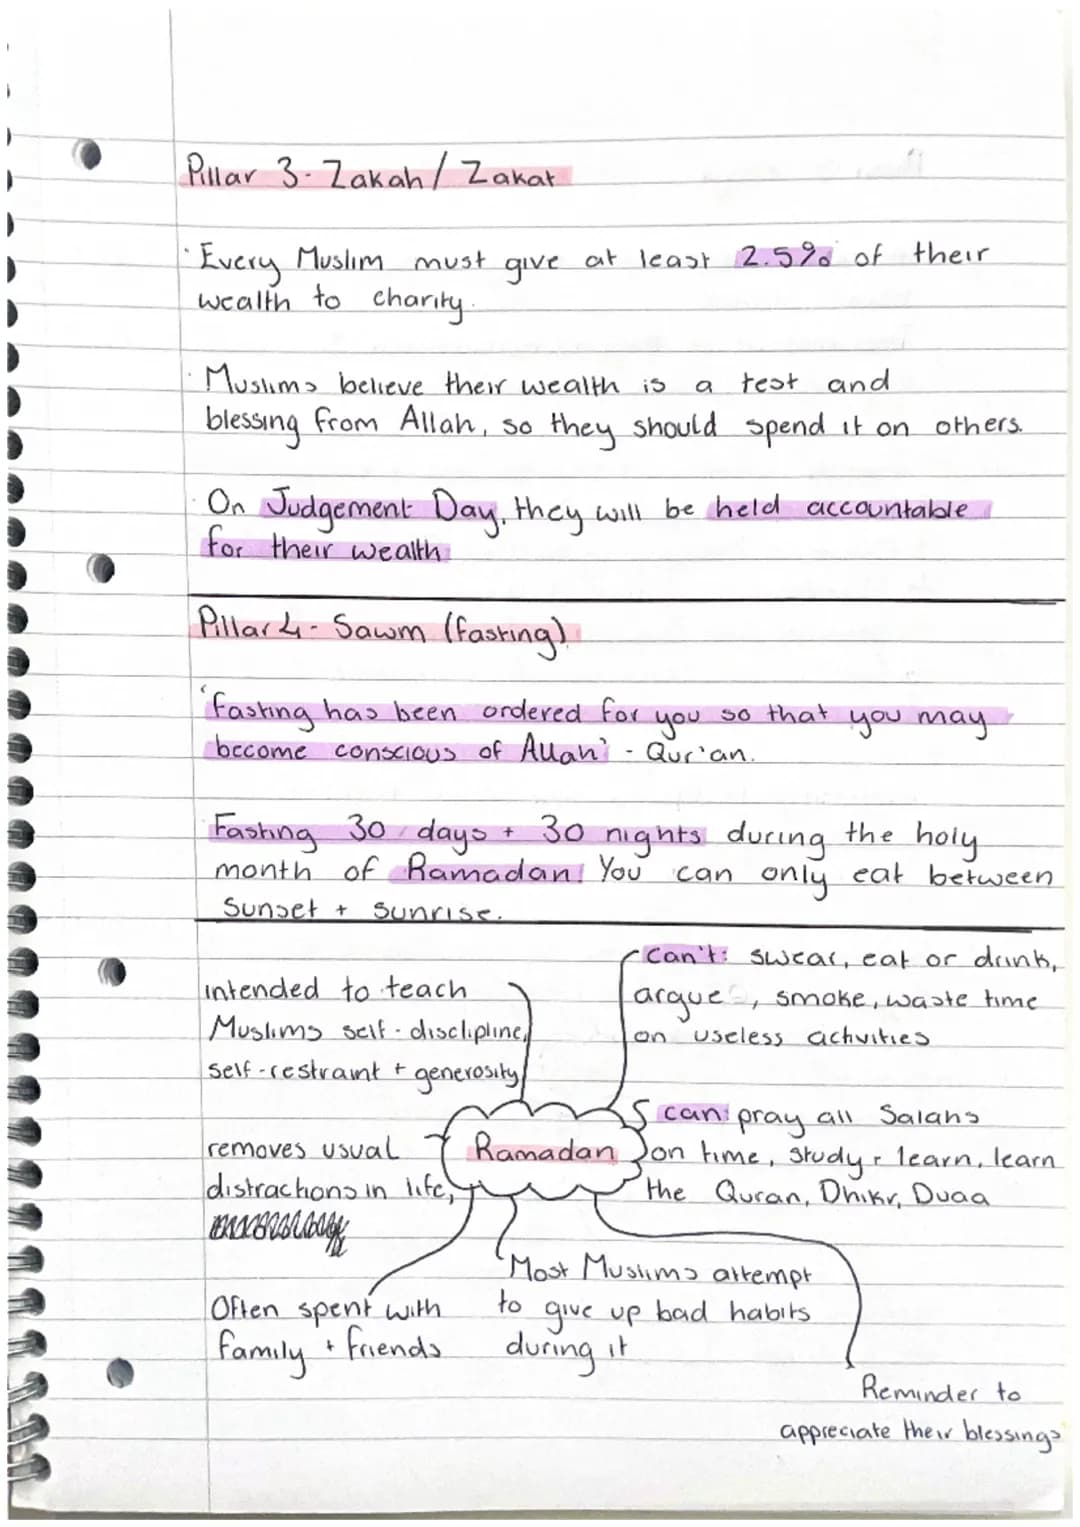 Pillar 3 - Zakah / Zakat
· Every Muslim must give at least 2.5% of their
wealth to charity.
· Muslims believe their wealth is a test and
blessing from Allah, so they should spend it on others.
· On Judgement Day, they will be held accountable
for their wealth
Pillar 4 - Sawm (fasting)
'Fasting has been ordered for you so that you may
become conscious of Allah' - Qur'an.
Fasting 30 days + 30 nights during the holy
month of Ramadan. You can only eat between
sunset + sunrise.
can't: swear, eat or drink,
argue, smoke, waste time
on useless activities
intended to teach
Muslims self-disclipline,
self-restraint + generosity
can: pray all Salahs
on time, study + learn, learn
the Quran, Dhikr, Duaa
removes usual
distractions in life,
Ramadan
Most Muslims attempt
to give up bad habits
during it
Often spent with
family + friends
Reminder to
appreciate their blessings